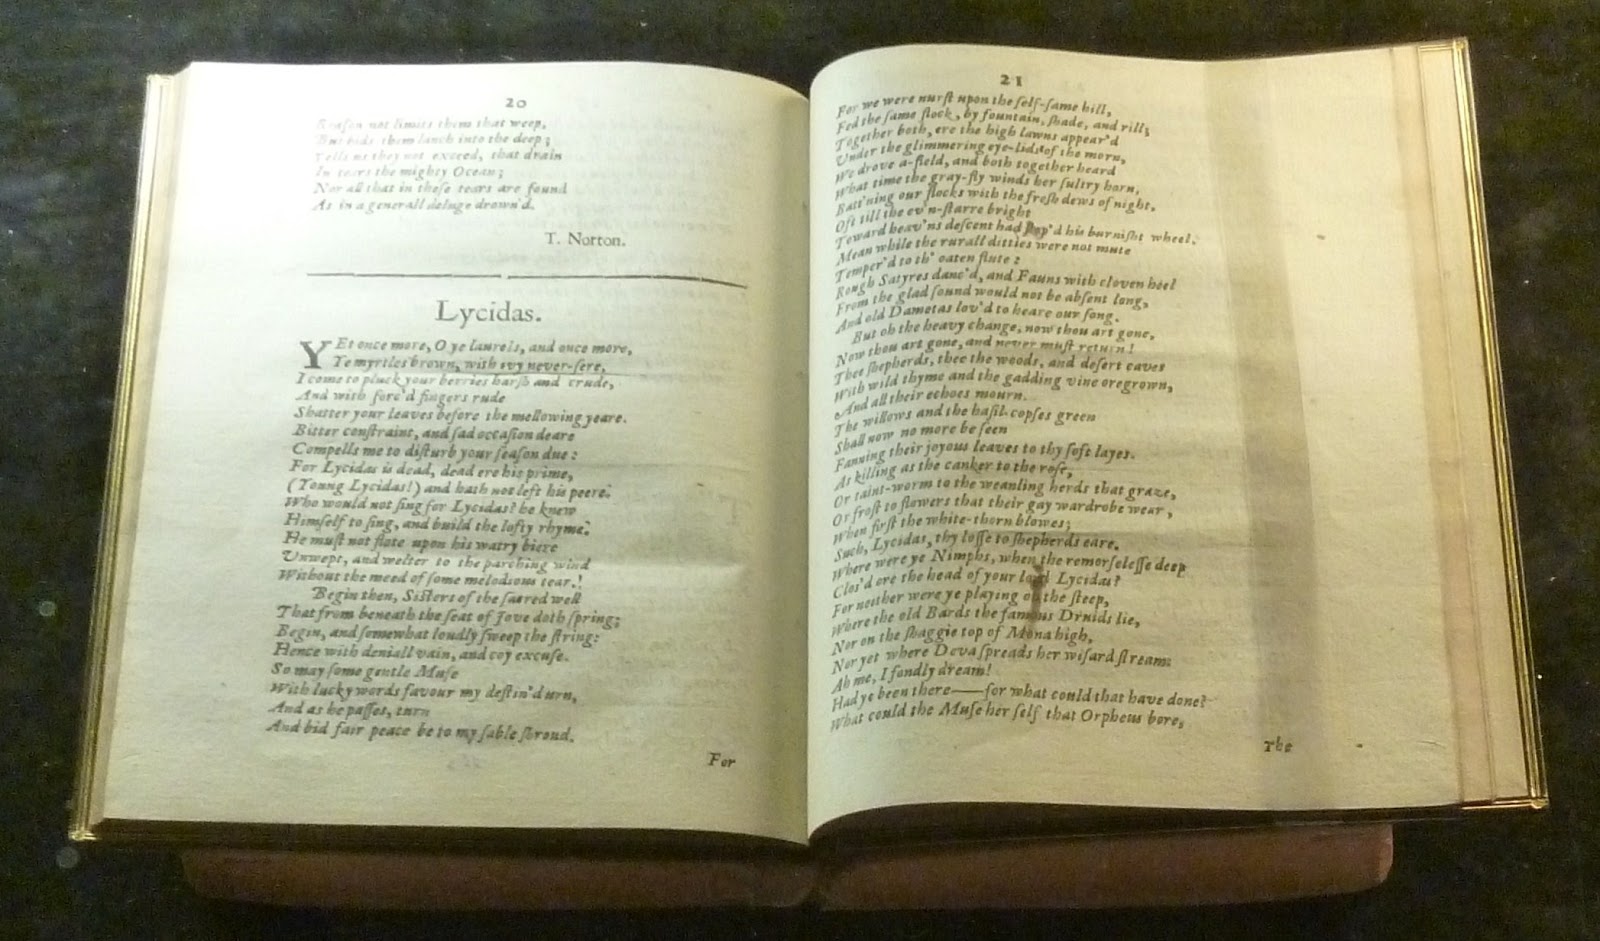 20
Reaſon not limits them that weep,
But bids them lanch into the deep;
Tells us they not exceed, that drain
In tears the mighty Ocean;
Nor all that in theſe tears are found
As in a generall deluge drown'd.
T. Norton.
Lycidas.
YEt once more, O ye laurels, and once more,
Ye myrtles brown, with ivy never-ſere,
I come to pluck your berries harſh and crude,
And with forc'd fingers rude
Shatter your leaves before the mellowing yeare.
Bitter conſtraint, and ſad occaſion deare
Compells me to diſturb your ſeaſon due:
For Lycidas is dead, dead ere his prime,
(Young Lycidas!) and hath not left his peere.
Who would not ſing for Lycidas? he knew
Himſelf to ſing, and build the lofty rhyme.
He muſt not flote upon his watry biere
Unwept, and welter to the parching wind
Without the meed of ſome melodious tear.
Begin then, Siſters of the ſacred well
That from beneath the ſeat of Jove doth ſpring;
Begin, and ſomewhat loudly ſweep the ſtring:
Hence with deniall vain, and coy excuſe.
So may ſome gentle Muſe
With lucky words favour my deſtin'd urn,
And as he paſſes, turn
And bid fair peace be to my ſable ſhroud.
For
21
For we were nurſt upon the ſelf-ſame hill,
Fed the ſame flock, by fountain, ſhade, and rill;
Together both, ere the high lawns appear'd
Under the glimmering eye-lids of the morn,
We drove a-field, and both together heard
What time the gray-fly winds her ſultry horn,
Batt'ning our flocks with the freſh dews of night,
Oft till the ev'n-ſtarre bright
Toward heav'ns deſcent had ſlop'd his burniſht wheel.
Mean while the rurall ditties were not mute
Temper'd to th' oaten flute:
Rough Satyres danc'd, and Fauns with cloven heel
From the glad ſound would not be abſent long,
And old Dametas lov'd to heare our ſong.
But oh the heavy change, now thou art gone,
Now thou art gone, and never muſt return!
Thee ſhepherds, thee the woods, and deſert caves
With wild thyme and the gadding vine oregrown,
And all their echoes mourn.
The willows and the haſil-copſes green
Shall now no more be ſeen
Fanning their joyous leaves to thy ſoft layes.
As killing as the canker to the roſe,
Or taint-worm to the weanling herds that graze,
Or froſt to flowers that their gay wardrobe wear,
When firſt the white-thorn blowes;
Such, Lycidas, thy loſſe to ſhepherds eare.
Where were ye Nimphs, when the remorſeleſſe deep
Clos'd ore the head of your lord Lycidas?
For neither were ye playing on the ſteep,
Where the old Bards the famous Druids lie,
Nor on the ſhaggie top of Mona high,
Nor yet where Deva ſpreads her wiſard ſtream:
Ah me, I fondly dream!
Had ye been there——for what could that have done?
What could the Muſe her ſelf that Orpheus bore,
The